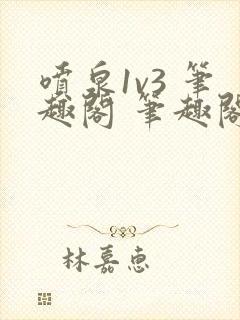 噴泉1v3 筆
趣閣 筆趣閣
林嘉惠